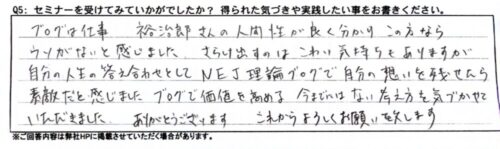 Q5: セミナーを受けてみていかがでしたか？ 得られた気づきや実践したい事をお書きください。
ブログは仕事 裕治郎さんの人間性が良く分かり この方なら
ウソがないと感じました さらけ出すのはこわい気持ちもありますが
自分の人生の答え合わせとしてNEJ理論ブログで自分の想いを残せたら
素敵だと感じました ブログで価値を高める 今までにはない考え方を気づかせて
いただきました ありがとうございます これからよろしくお願い致します
※ご回答内容は弊社HPに掲載させていただく場合があります。